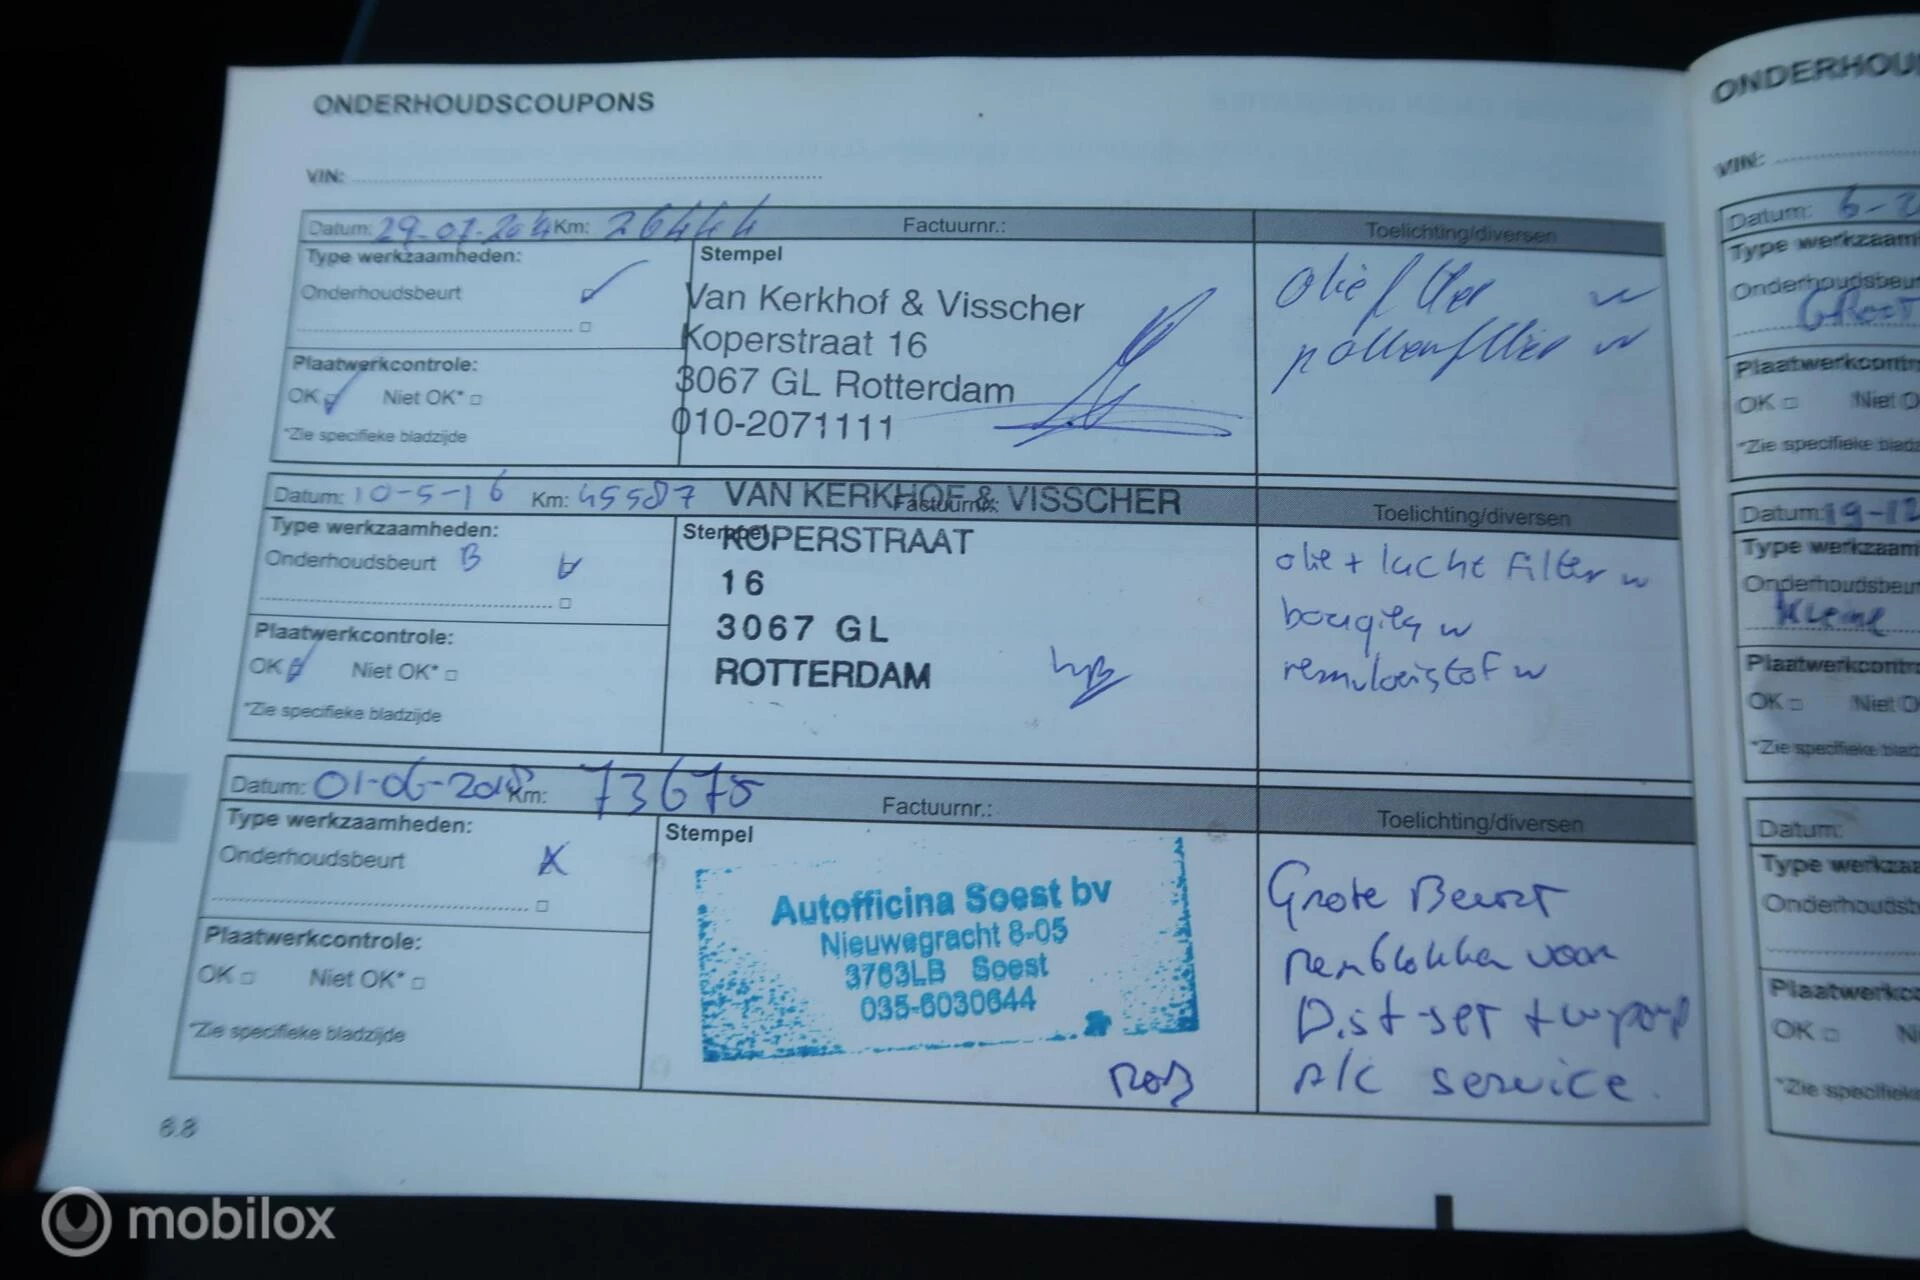 ONDERHOUDSCOUPONS
VIN:
Datum: 29-07-2014 Km: 26444 Factuurnr.: Toelichting/diversen
Type werkzaamheden:
Onderhoudsbeurt
Stempel
Van Kerkhof & Visscher
Koperstraat 16
3067 GL Rotterdam
010-2071111
Oliefilter vv
pollenfilter vv
Plaatwerkcontrole:
OK Niet OK*
*Zie specifieke bladzijde
Datum: 10-5-16 Km: 45587 Factuurnr.: Toelichting/diversen
Type werkzaamheden:
Onderhoudsbeurt B
Stempel
VAN KERKHOF & VISSCHER
KOPERSTRAAT
16
3067 GL
ROTTERDAM
olie + lucht Filter vv
bougies vv
remvloeistof vv
Plaatwerkcontrole:
OK Niet OK*
*Zie specifieke bladzijde
Datum: 01-06-2018 Km: 73678 Factuurnr.: Toelichting/diversen
Type werkzaamheden:
Onderhoudsbeurt X
Stempel
Autofficina Soest bv
Nieuwegracht 8-05
3763LB Soest
035-6030644
Rob
Grote Beurt
remblokken voor
Dist-set + w/pomp
A/C service.
Plaatwerkcontrole:
OK Niet OK*
*Zie specifieke bladzijde
6.8
ONDERHOU
VIN:
Datum: 6-2
Type werkzaam
Onderhoudsbeu
Groot
Plaatwerkcontr
OK Niet O
*Zie specifieke blad
Datum: 19-12
Type werkzaam
Onderhoudsbeu
kleine
Plaatwerkcontr
OK Niet O
*Zie specifieke blad
Datum:
Type werkzaa
Onderhoudsb
Plaatwerkc
OK N
*Zie specifieke
mobilox